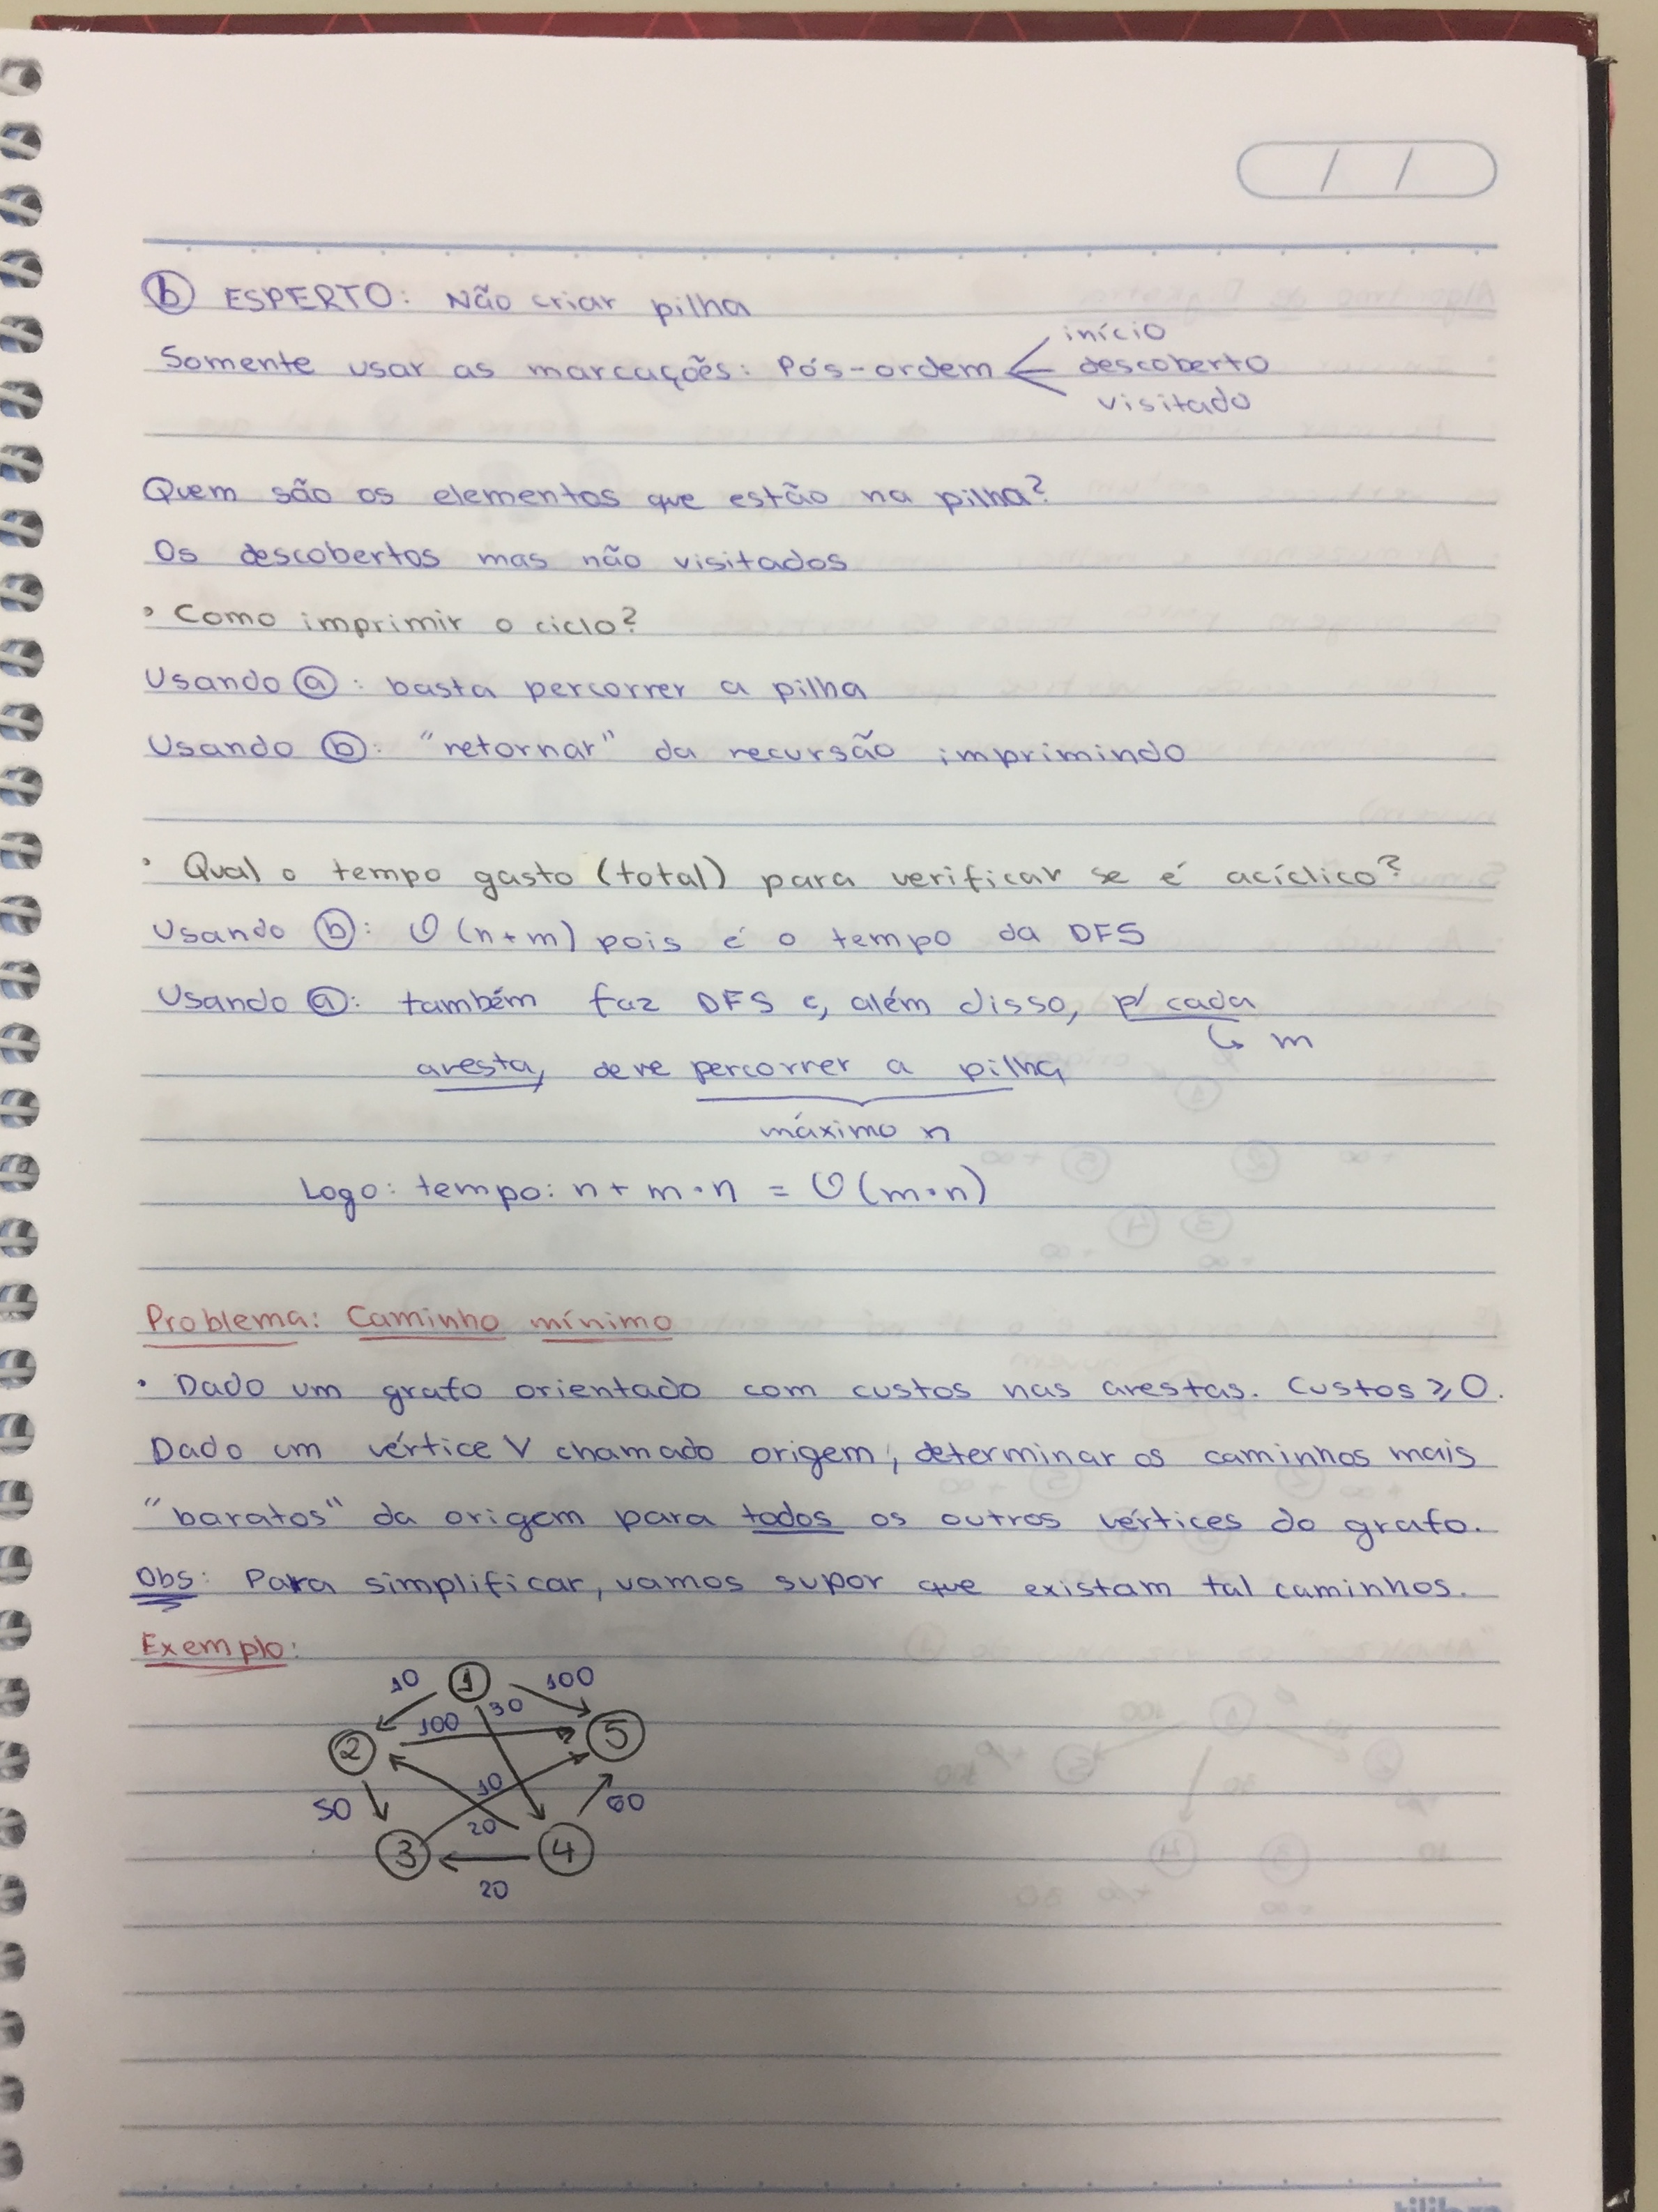 / /
ⓑ ESPERTO: Não criar pilha
início
Somente usar as marcações: Pós-ordem descoberto
visitado
Quem são os elementos que estão na pilha?
Os descobertos mas não visitados
• Como imprimir o ciclo?
Usando ⓐ: basta percorrer a pilha
Usando ⓑ: "retornar" da recursão imprimindo
• Qual o tempo gasto (total) para verificar se é acíclico?
Usando ⓑ: O(n+m) pois é o tempo da DFS
Usando ⓐ: também faz DFS e, além disso, p/ cada
↳ m
aresta, deve percorrer a pilha
máximo n
Logo: tempo: n + m·n = O(m·n)
Problema: Caminho mínimo
• Dado um grafo orientado com custos nas arestas. Custos ≥ 0.
Dado um vértice V chamado origem, determinar os caminhos mais
"baratos" da origem para todos os outros vértices do grafo.
Obs: Para simplificar, vamos supor que existam tal caminhos.
Exemplo:
10 1 100
30
100
2 5
10
50 60
20
3 4
20